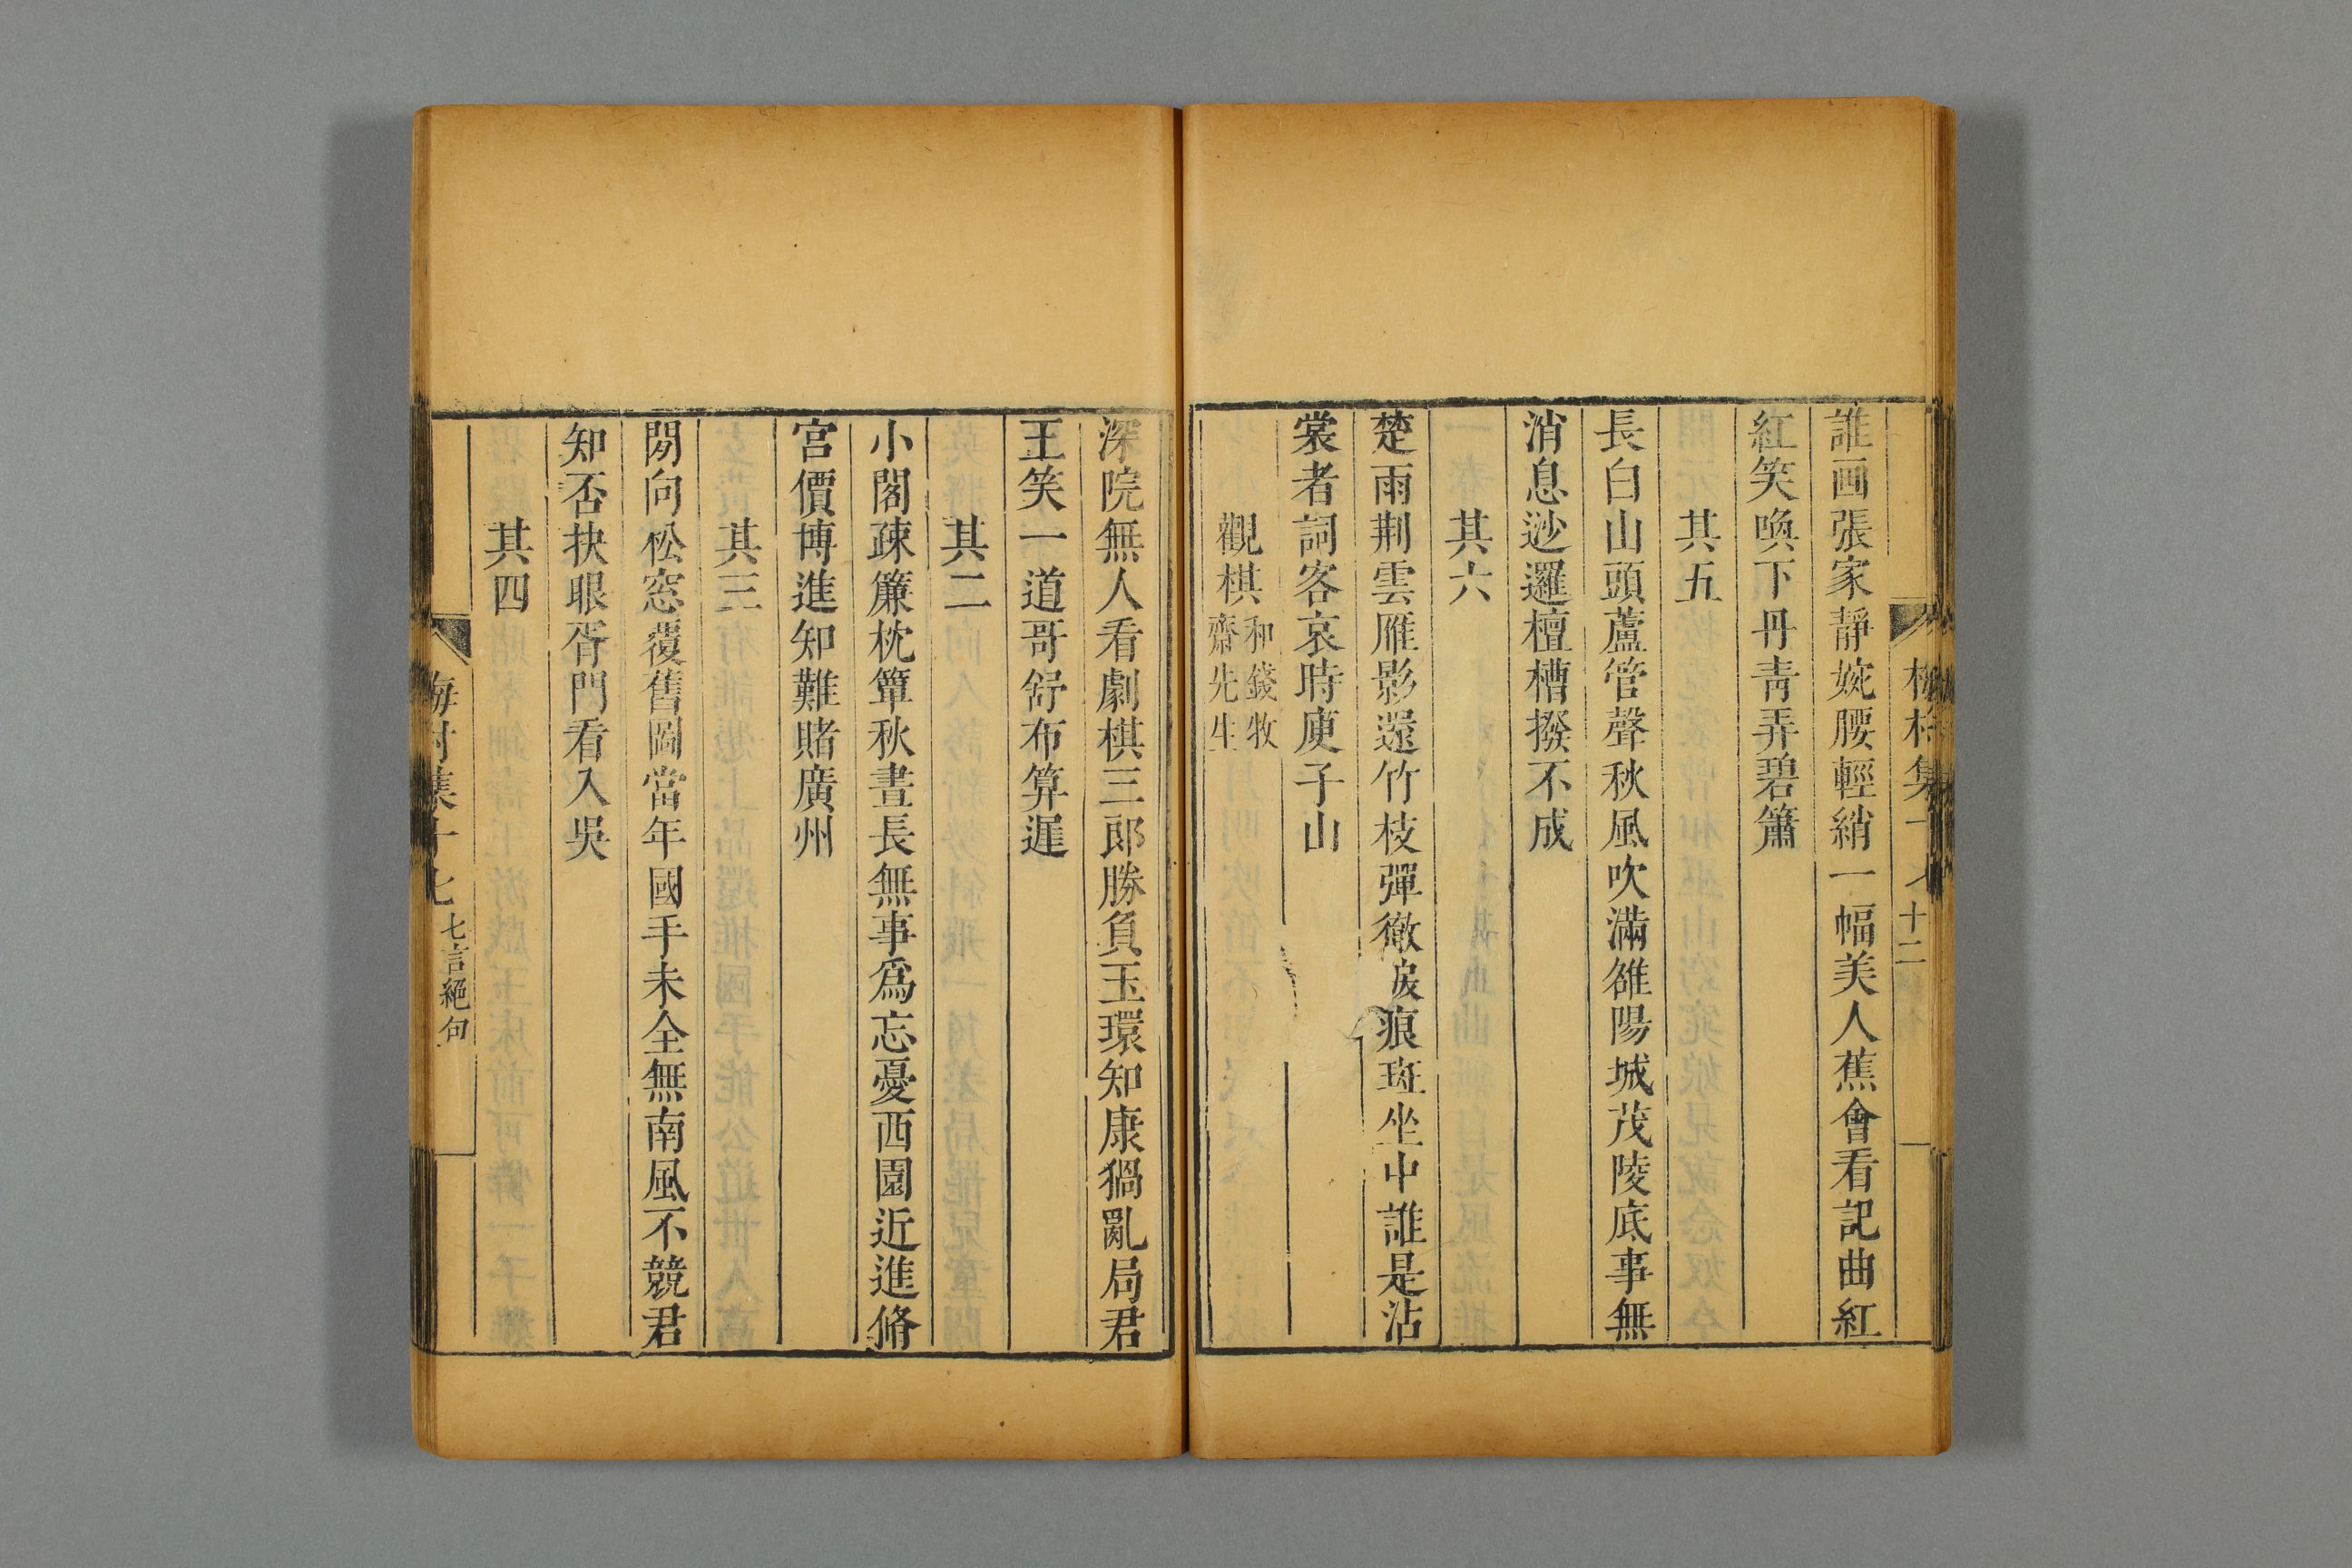 誰画張家靜婉腰輕綃一幅美人蕉會看記曲紅
紅笑喚下丹靑弄碧簫
其五
長白山頭蘆管聲秋風吹滿雒陽城茂陵底事無
消息逤邏檀槽撥不成
其六
楚雨荆雲雁影還竹枝彈徹淚痕斑坐中誰是沾
裳者詞客哀時庾子山
觀棋
和錢牧
齋先生
深院無人看劇棋三郎勝負玉環知康猧亂局君
王笑一道哥舒布算遲
其二
小閣疎簾枕簟秋晝長無事爲忘憂西園近進脩
宮價博進知難賭廣州
其三
閒向松窓覆舊圖當年國手未全無南風不競君
知否抉眼胥門看入吳
其四
梅村集十七
七言絕句
梅村集
十二